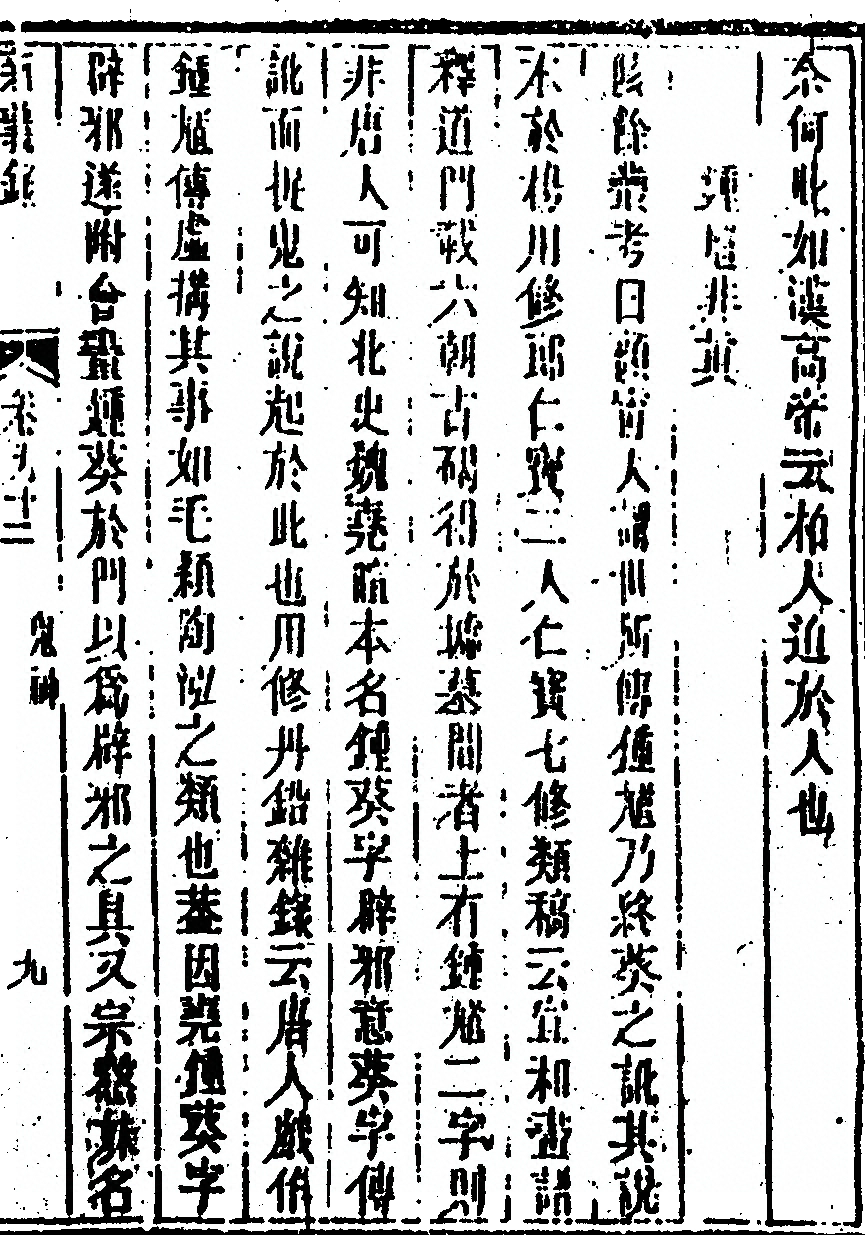 奈何此如漢高帝云柏人迫於人也
鍾馗非真
陔餘叢考曰顧寧人謂世所傳鍾馗乃終葵之訛其說
本於楊用修郎仁寶二人仁寶七修類稿云宣和畫譜
釋道門載六朝古碣得於墟墓間者上有鍾馗二字則
非唐人可知北史魏堯暄本名鍾葵字辟邪意葵字傳
訛而捉鬼之說起於此也用修丹鉛雜錄云唐人戲作
鍾馗傳虛搆其事如毛穎陶泓之類也蓋因堯鍾葵字
辟邪遂附會畫鍾葵於門以爲辟邪之具又宗懿妹名
卷九十二
鬼神
九